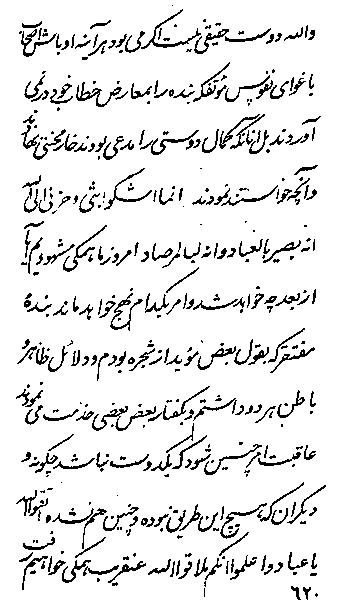 والله دوست حقیقی نیست اگر می بود هر آینه او باش
باغوای نفوس مؤتفکه بنده را بمعارض خطاب خود در نمی
آوردند بل آنانکه کمال دوستی را مدعی بودند خار
و آنچه خواستند نمودند انما اشکو ابثی و حزنی الی الله
انه بصیر بالعباد و انه لبالمرصاد امروز ما همگی مشهودیم آیا
از بعد چه خواهد شد و امر بکدام نهج خواهد ماند بندهٔ
مفتقر که بقول بعض مؤید از شجره بودم و دلائل ظاهر و
باطن هر دو داشتم و بگفتار بعض بعضی خدمت می نمودند
عاقبت امر چنین شود که یکدوست نباشد چگونه و
دیگران که هیچ این طریق نبوده و چنین هم نشده اتقوا الله
یا عباد و اعلموا انکم ملاقوا الله عنقریب همگی خواهیم رفت
٦٢٠